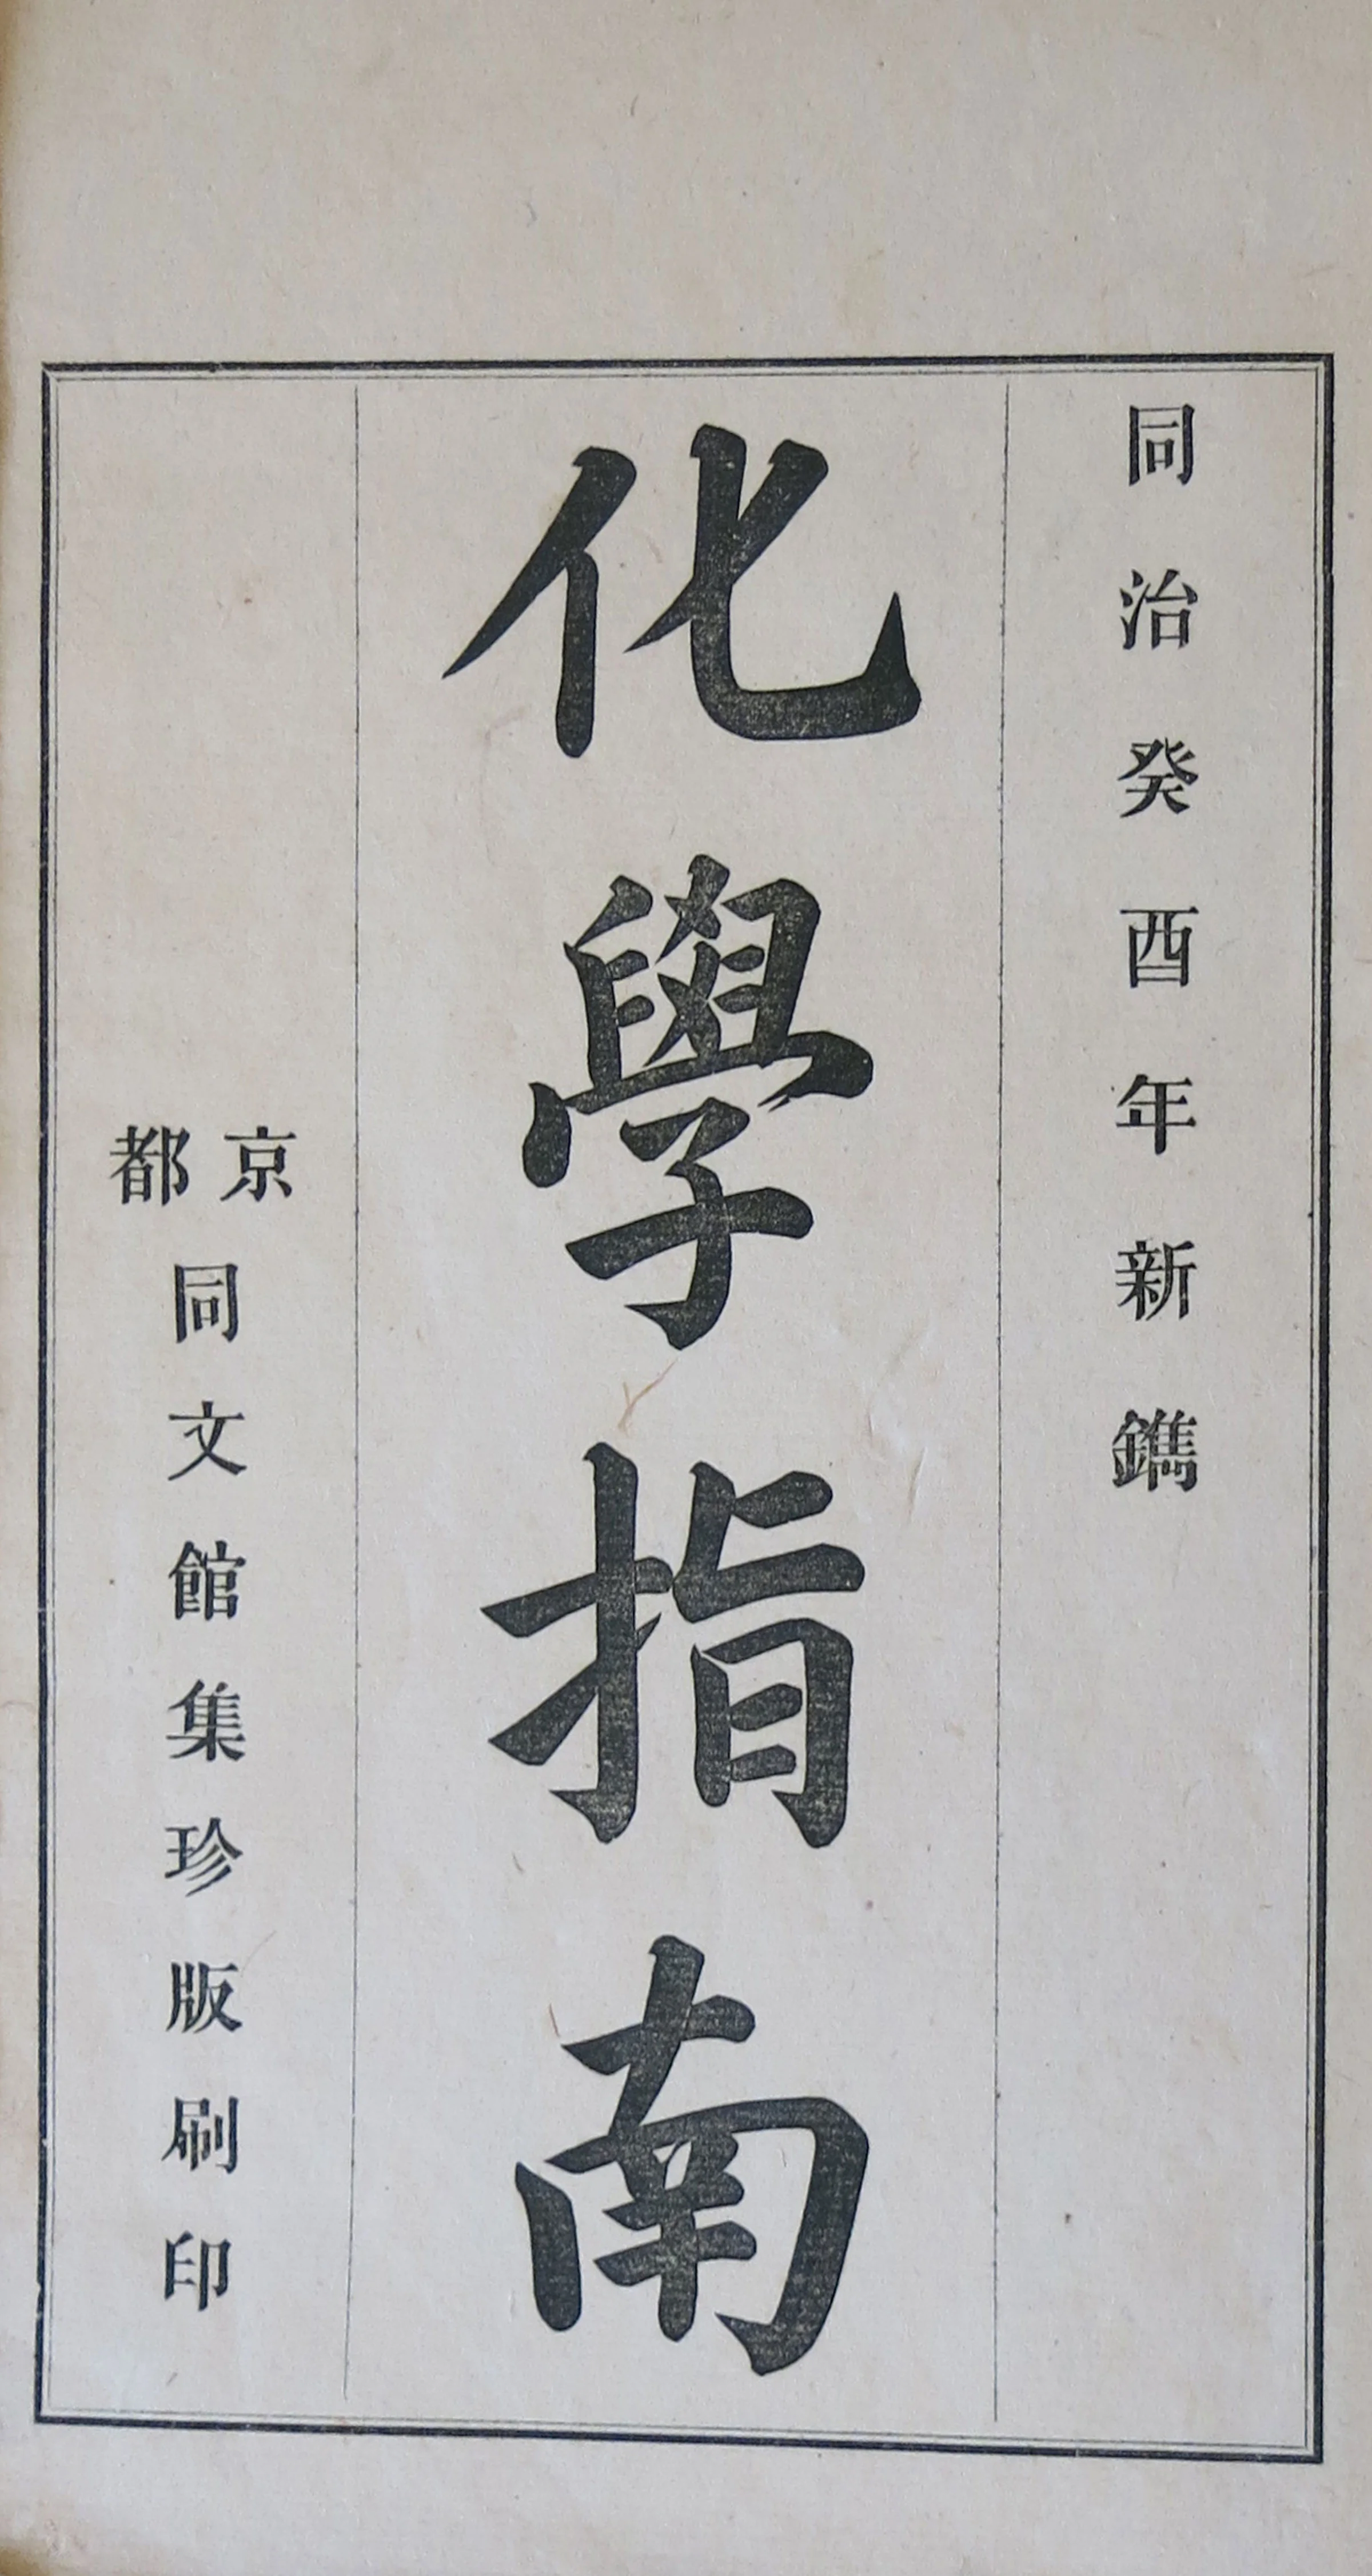 同治癸酉年新鐫
化學指南
京都同文館集珍版刷印